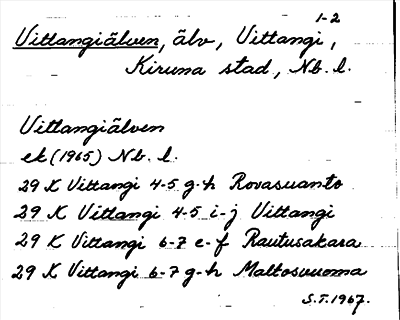 1-2
Vittangiälven, älv, Vittangi,
Kiruna stad, Nb. l.
Vittangiälven
ek (1965) Nb. l.
29 K Vittangi 4-5 g-h Rovasuanto
29 K Vittangi 4-5 i-j Vittangi
29 K Vittangi 6-7 e-f Rautusakara
29 K Vittangi 6-7 g-h Maltosvuoma
S.T. 1967.